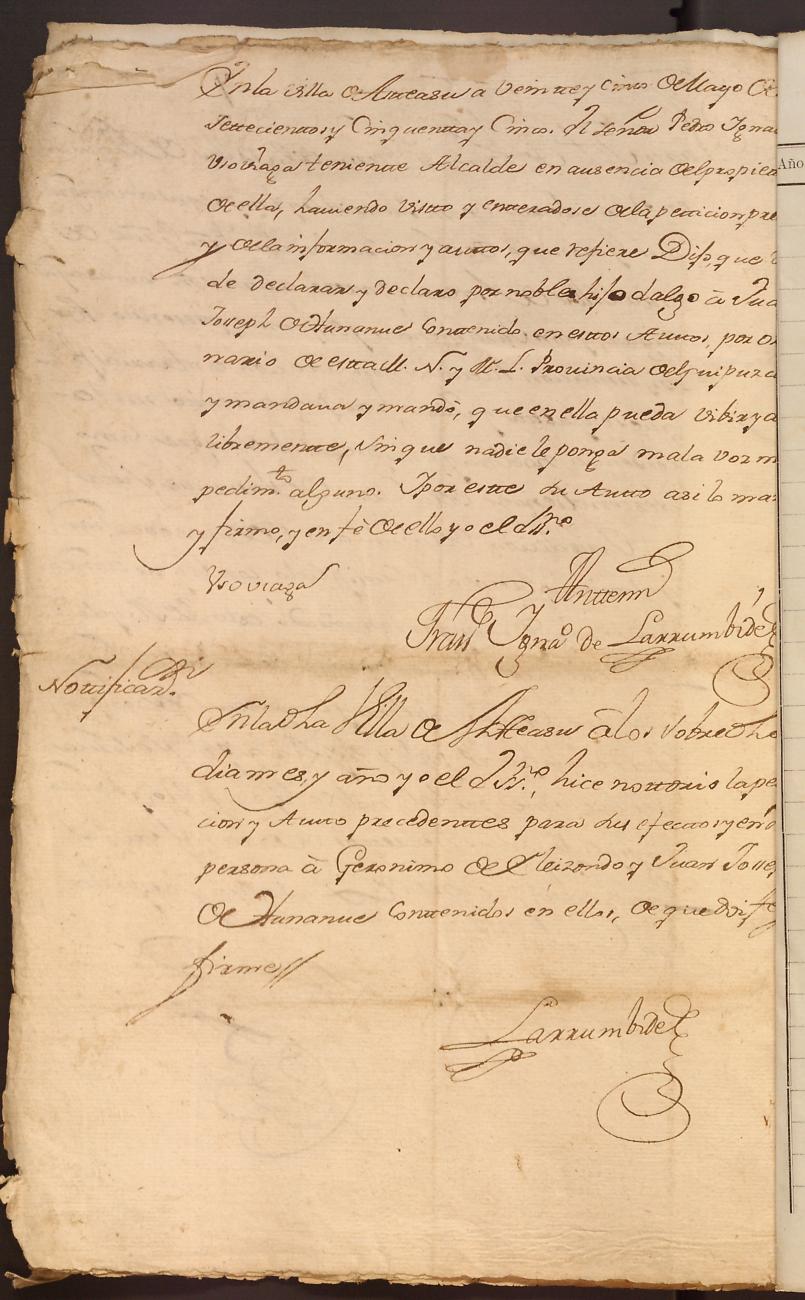 En la villa de Atteasu a veintte y cinco de Mayo de
settecienttos y Cinquentta y Cinco. El señor Pedro Ygna
teniente Alcalde en ausencia del propiet
de ella, haviendo visto y enterados e de la petticion pre
y de la informacion y auttos, que refiere Dijo, que
de declarar y declaro por noble hijo dalgo â Jua
Joseph de Hunanue Conttenido en esttos Auttos, por o
nario de estta M. N. y M. L. Provincia de Guipuzc
y mandava y mandò, que en ella pueda vibir y a
libremente, sin que nadie le ponga mala voz n
pedimto. alguno. Y por estte su Autto asi lo man
y firmo, y en fè de ello yo el Ssno
Antte mi
Franco. Ygnao. de Larrumbide
Nottificaon.
En la dha Villa de Atteasu â los sobre dho
dia mes, y año yo el Ssno., hice nottorio la pe
cion y Autto precedenttes para sus efecttos y en
persona â Geronimo de Eleizondo y Juan Josse
de Hunanue Conttenidos en ellos, de que doi fe
firme
Larrumbide
Año